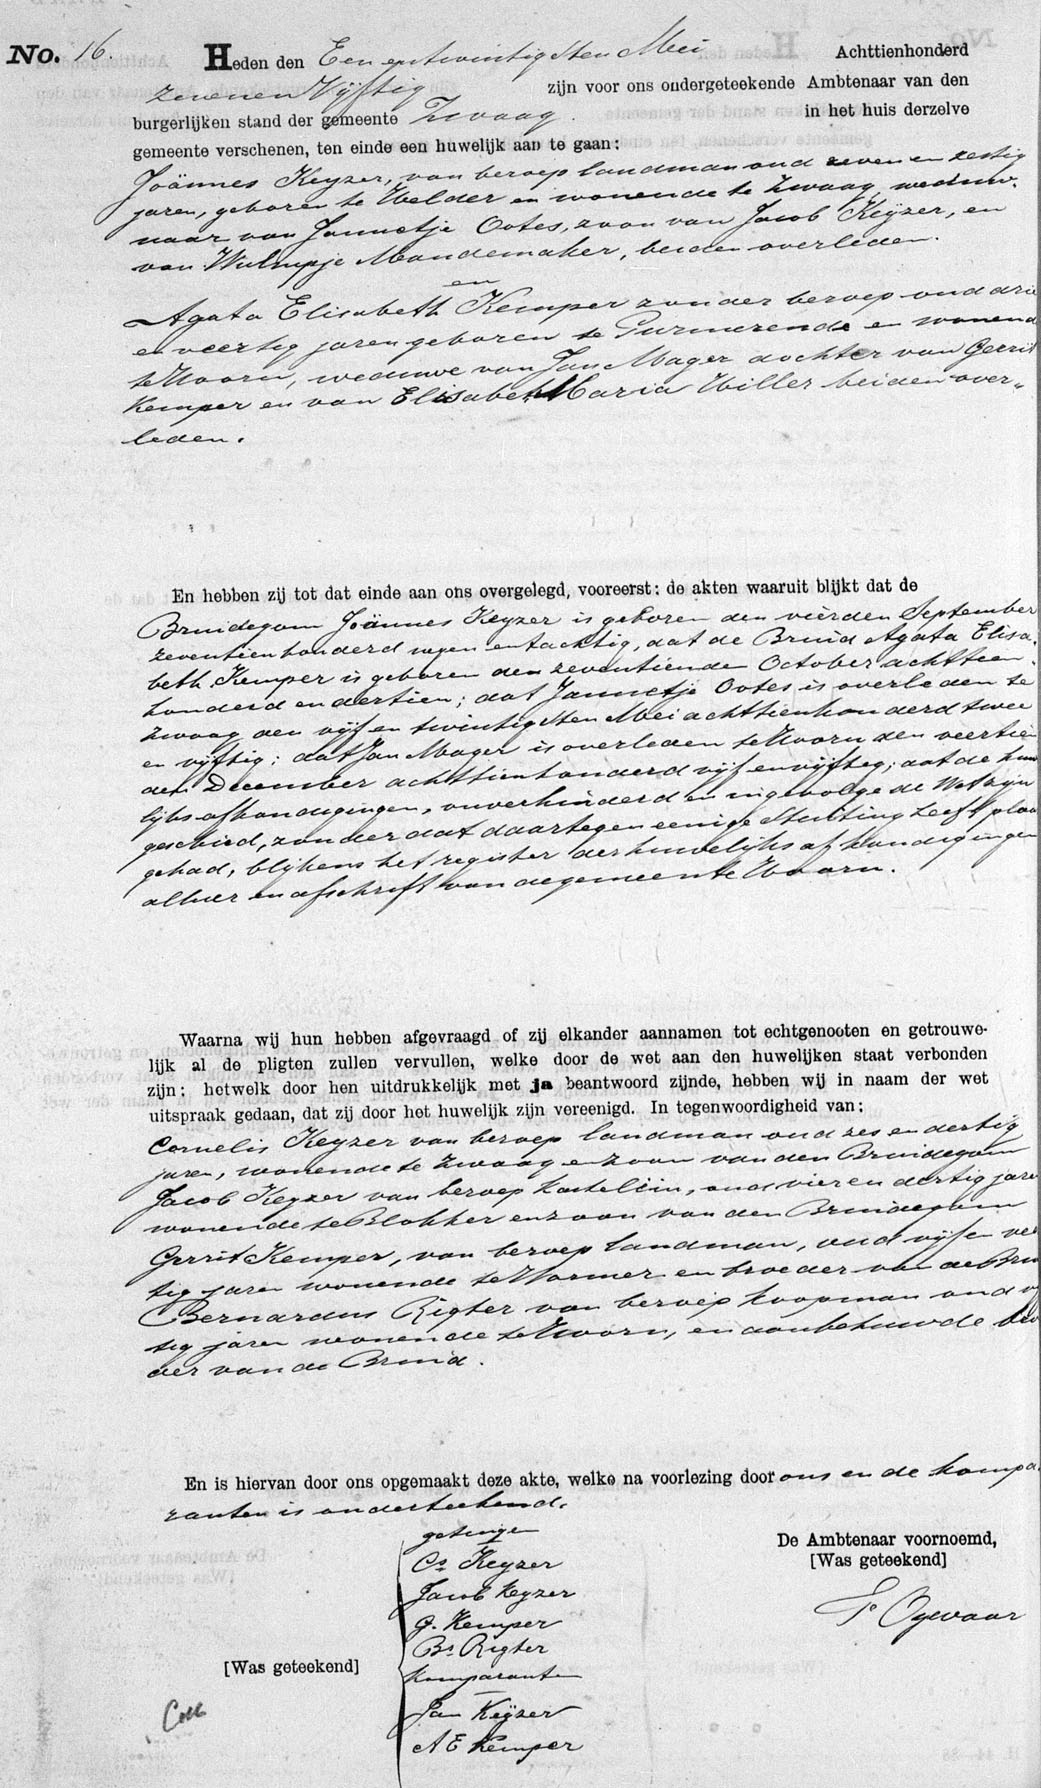 No. 16.
Heden den Een en twintigsten Mei Achttienhonderd
zeven en Vijftig zijn voor ons ondergeteekende Ambtenaar van den
burgerlijken stand der gemeente Zwaag. in het huis derzelve
gemeente verschenen, ten einde een huwelijk aan te gaan:
Joännes Keyzer, van beroep landman oud zeven en zestig
jaren, geboren te Helder en wonende te Zwaag, weduw-
naar van Jannetje Ootes, zoon van Jacob Keÿzer, en
van Mandemaker, beiden overleden.
en
Agata Elisabeth Kemper zonder beroep oud drie
en veertig jaren geboren te Purmerende en wonend
te Hoorn, weduwe van Jan Mager dochter van Gerrit
Kemper en van Elisabeth Maria Willer beiden over-
leden.
En hebben zij tot dat einde aan ons overgelegd, vooreerst: de akten waaruit blijkt dat de
Bruidegom Joännes Keyzer is geboren den vierden September
zeventienhonderd negen en tachtig, dat de Bruid Agata Elisa-
beth Kemper is geboren den zeventienden October achttien-
honderd en dertien; dat Jannetje Ootes is overleden te
Zwaag den vijf en twintigsten Mei achttienhonderd twee
en vijftig; dat Jan Mager is overleden te Hoorn den veertien
den December achttienhonderd vijf en vijftig; dat de huwe
lijks afkondigingen, onverhinderd en ingevolge de Wet zijn
geschied, zonder dat daartegen eenige Stuiting heeft plaa
gehad, blijkens het register der huwelijks afkondigingen
alhier en afschrift van de gemeente Hoorn.
Waarna wij hun hebben afgevraagd of zij elkander aannamen tot echtgenooten en getrouwe-
lijk al de pligten zullen vervullen, welke door de wet aan den huwelijken staat verbonden
zijn; hetwelk door hen uitdrukkelijk met ja beantwoord zijnde, hebben wij in naam der wet
uitspraak gedaan, dat zij door het huwelijk zijn vereenigd. In tegenwoordigheid van:
Cornelis Keyzer van beroep landman oud zes en dertig
jaren, wonende te Zwaag en zoon van den Bruidegom
Jacob Keyzer van beroep kastelein, oud vier en dertig jare
wonende te Blokker en zoon van den Bruidegom
Gerrit Kemper, van beroep landman, oud vijf en vee
tig jaren wonende te Wormer en broeder van de Bru
Bernardus Rigter van beroep koopman oud
tig jaren wonende te Hoorn, en aanbehuwde broe
der van de Bruid.
En is hiervan door ons opgemaakt deze akte, welke na voorlezing door ons en de kompa
ranten is onderteekend.
getuigen
Cs. Keyzer
Jacob Keyzer
G. Kemper
Bs. Rigter
komparanten
Jan Keÿzer
A E Kemper
[Was geteekend]
De Ambtenaar voornoemd,
[Was geteekend]